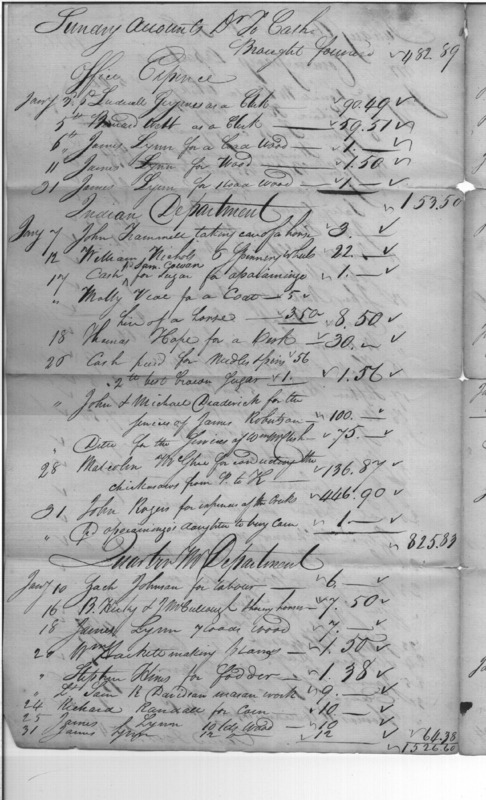 Sundry Accounts Dr To Cash
Brought forward 482.89
Office Expence
Jany 3 Grymes as a Clerk 90.49
5th Webb as a Clerk 59.51
6th James Lynn for a Cord Wood 1.
11 James Lynn for Wood 1.50
21 James Lynn for Wood 1
153.50
Indian Department
Jany 7 John Trammill taking care of a horse 3.
12 William Nichols 5 Spinning Wheels 22.
17 Cash Saml Cowan for Sugar for 1.
" Molly for a Coat 5.
hire of a horse 3.50 8.50
18 Thomas Hope for a Desk 30.
20 Cash paid for Needles & pins 56
2 lb best brown Sugar 1. 1.56
" John & Michael Deadrick for the
services of James Robertson 100.
" Ditto for the Services of 75.
28 Malcolm McGhee for conducting the
chickesaws from P. to K 136.87
31 John Rogers for expences of the Creeks 446.90
" daughter to buy Corn 1
825.83
Quarter Mr Department
Jany 10 Zach Johnson for labour 6
16 B. Kerby & J McCullough shoeing horses 7.50
18 James Lynn 7 loads wood 7.
20 Wm Hackett making 1.50
" Stephen Hims for Fodder 1.38
" mason work 9.
24 Richard Randall for Corn 10
25 James Lynn 10 lds Wood 10
31 James Lynn 12 12
64.38
1526.60